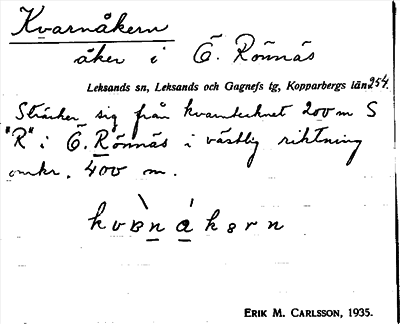 Kvarnåkern
åker i Ö. Rönnäs
Leksands sn, Leksands och Gagnefs tg, Kopparbergs län 254.
Sträcker sig från kvarntecknet 200 m S
"R" i Ö. Rönnäs i västlig riktning
omkr. 400 m.
ERIK M. CARLSSON, 1935.